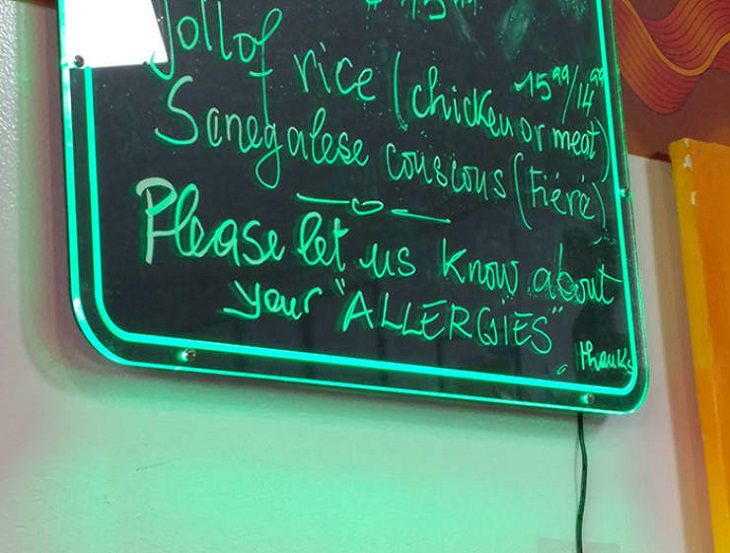 Jollof rice (chicken or meat)
15⁹⁹/14⁹⁹
Sanegalese couscous (Fiéré)
Please let us know about
your "ALLERGIES"
thanks